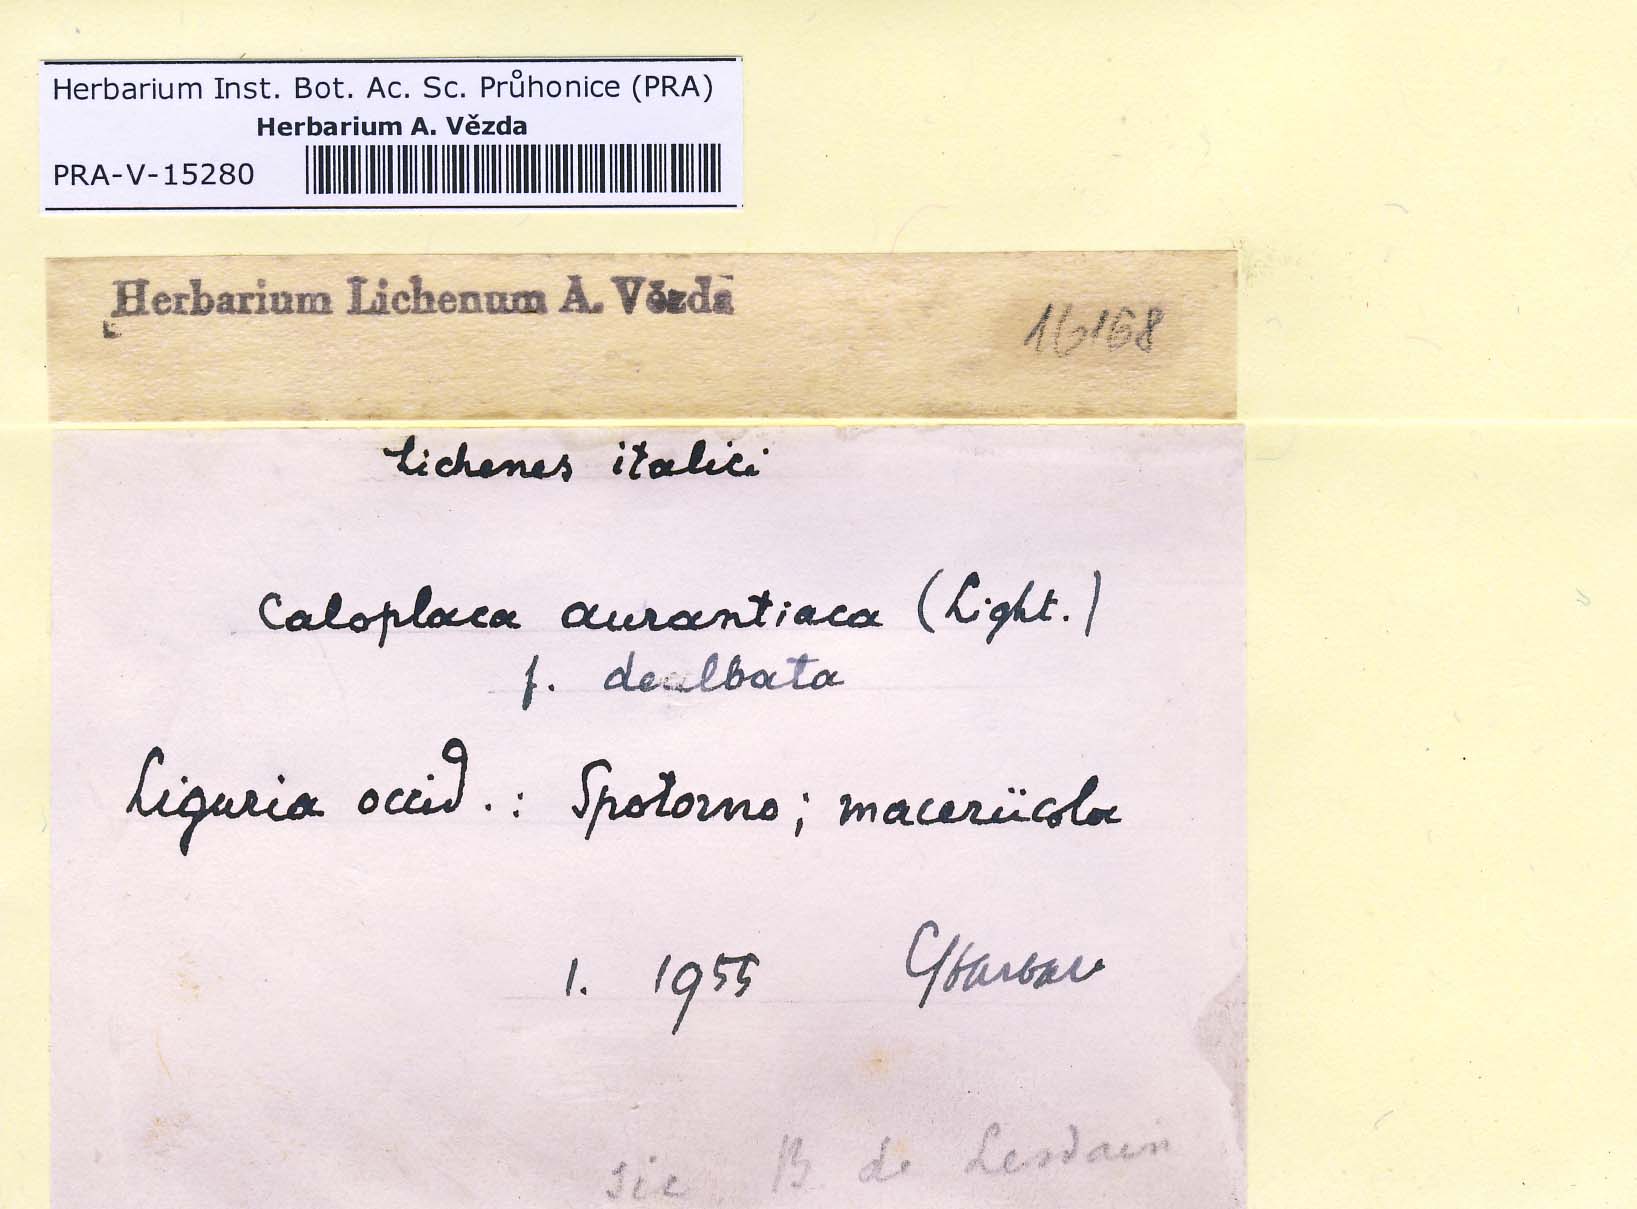 Herbarium Inst. Bot. Ac. Sc. Průhonice (PRA)
Herbarium A. Vězda
PRA-V-15280
Herbarium Lichenum A. Vězda
16168
Lichenes italici
Caloplaca aurantiaca (Light.)
f. dealbata
Liguria occid.: Spotorno; maceriicola
1. 1955
sic B de Lesdain